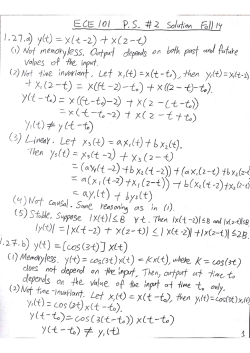 ECE 101 P.S. #2 Solution Fall 14
1.27. a) y(t) = x(t-2) + x(2-t)
(1) Not memoryless. Output depends on both past and future
values of the input.
(2) Not time invariant. Let x₁(t) = x(t-t₀), then y₁(t) = x₁(t-2)
+ x₁(2-t) = x((t-2)-t₀) + x((2-t)-t₀).
y(t-t₀) = x((t-t₀)-2) + x(2-(t-t₀))
= x(t-t₀-2) + x(2-t+t₀)
y₁(t) ≠ y(t-t₀)
(3) Linear. Let x₃(t) = ax₁(t) + bx₂(t).
Then y₃(t) = x₃(t-2) + x₃(2-t)
= (ax₁(t-2) + bx₂(t-2)) + (ax₁(2-t) + bx₂(2-t))
= a(x₁(t-2) + x₁(2-t)) + b(x₂(t-2) + x₂(2-t))
= ay₁(t) + by₂(t)
(4) Not causal. Same reasoning as in (1).
(5) Stable. Suppose |x(t)| ≤ B ∀ t. Then |x(t-2)| ≤ B and |x(2-t)| ≤ B
|y(t)| = |x(t-2) + x(2-t)| ≤ |x(t-2)| + |x(2-t)| ≤ 2B
1.27. b) y(t) = [cos(3t)] x(t)
(1) Memoryless. y(t) = cos(3t) x(t) = K x(t), where K = cos(3t)
does not depend on the input. Then, output at time t₀
depends on the value of the input at time t₀ only.
(2) Not time-invariant. Let x₁(t) = x(t-t₀), then y₁(t) = cos(3t) x₁(t)
y₁(t) = cos(3t) x(t-t₀).
y(t-t₀) = cos(3(t-t₀)) x(t-t₀)
y(t-t₀) ≠ y₁(t)
1